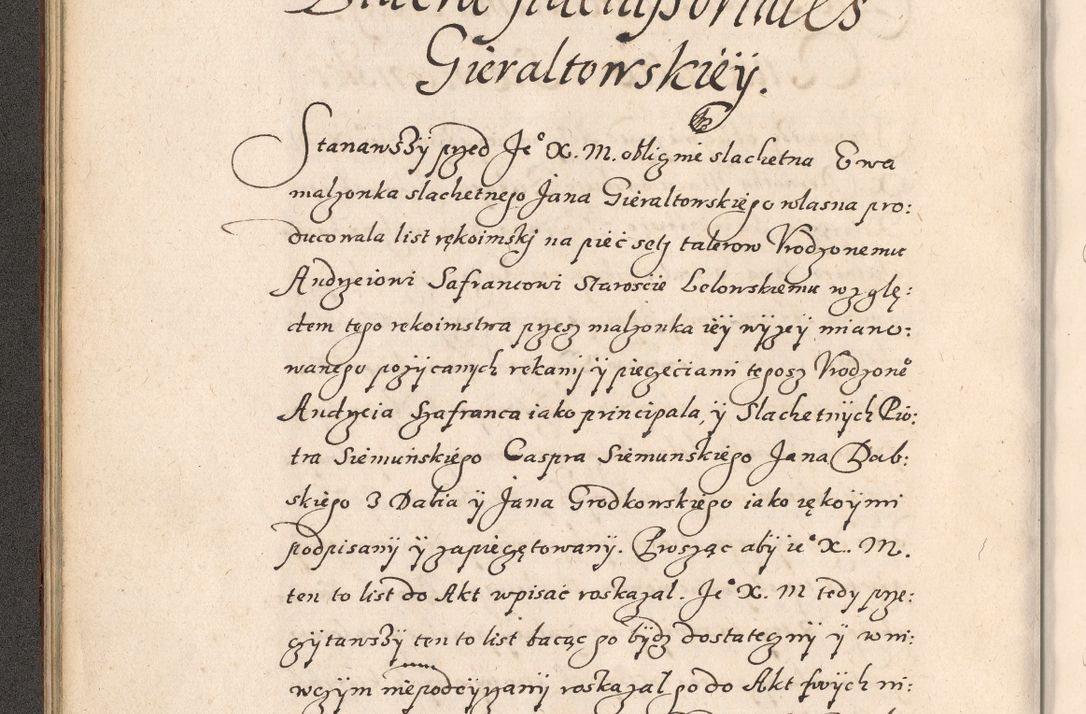 Gieraltowskiéÿ.
Stanawszÿ przed Je° X. M. oblignie slachetna Ewa
malzonka slachetnego Jana Gieraltowskiego wlasna pro:
ducowala list rękoimskj na pieć setj talerow Vrodzonemu
Andrzeiowi Safrancowi Staroście Lelowskiemu wzglę:
dem tego rekoimstwa przesz malzonka ieÿ wyzeÿ miano:
wanego pozÿcanych rekami ÿ pieczeciami tegosz Vrodzone°
Andrzeia Szafranca iako principala, ÿ Slachetnÿch Pio:
tra Siemuńskiego Caspra Siemunskiego Jana Dab:
skiego z Dabia ÿ Jana Grodkowskiego iako rękoÿmi
podpisanÿ ÿ zapieczętowanÿ. Prosząc abÿ ie° X. M.
ten to list do Akt wpisać roskazal. Je° X. M tedy prze:
czÿtawszÿ ten to list bacząc go bÿdz dostatecznÿ ÿ w ni:
wczÿm niepodeÿzranÿ roskazal go do Akt swÿch ni: